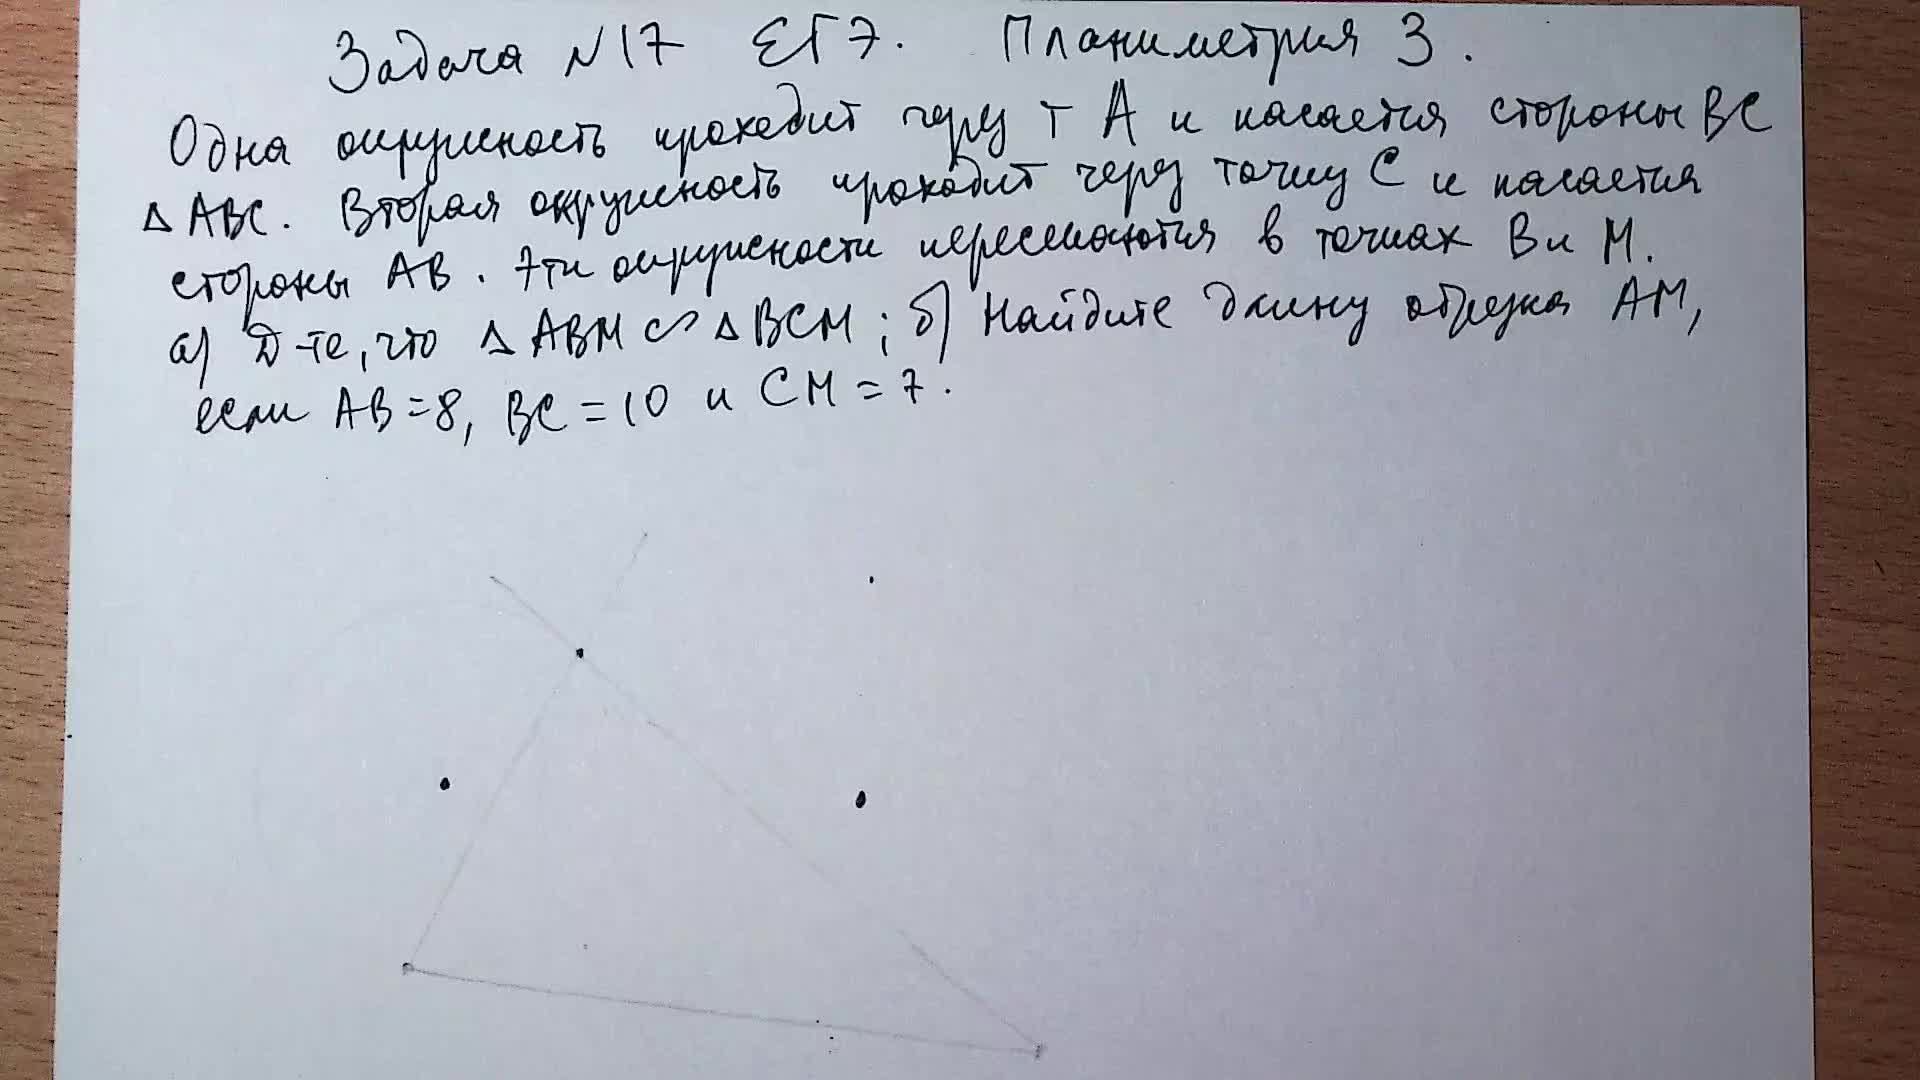 Задача №17 ЕГЭ. Планиметрия 3.
Одна окружность проходит через т А и касается стороны ВС
△ АВС. Вторая окружность проходит через точку С и касается
стороны АВ. Эти окружности пересекаются в точках В и М.
а) Д-те, что △ АВМ ∽ △ ВСМ; б) Найдите длину отрезка АМ,
если АВ=8, ВС=10 и СМ=7.